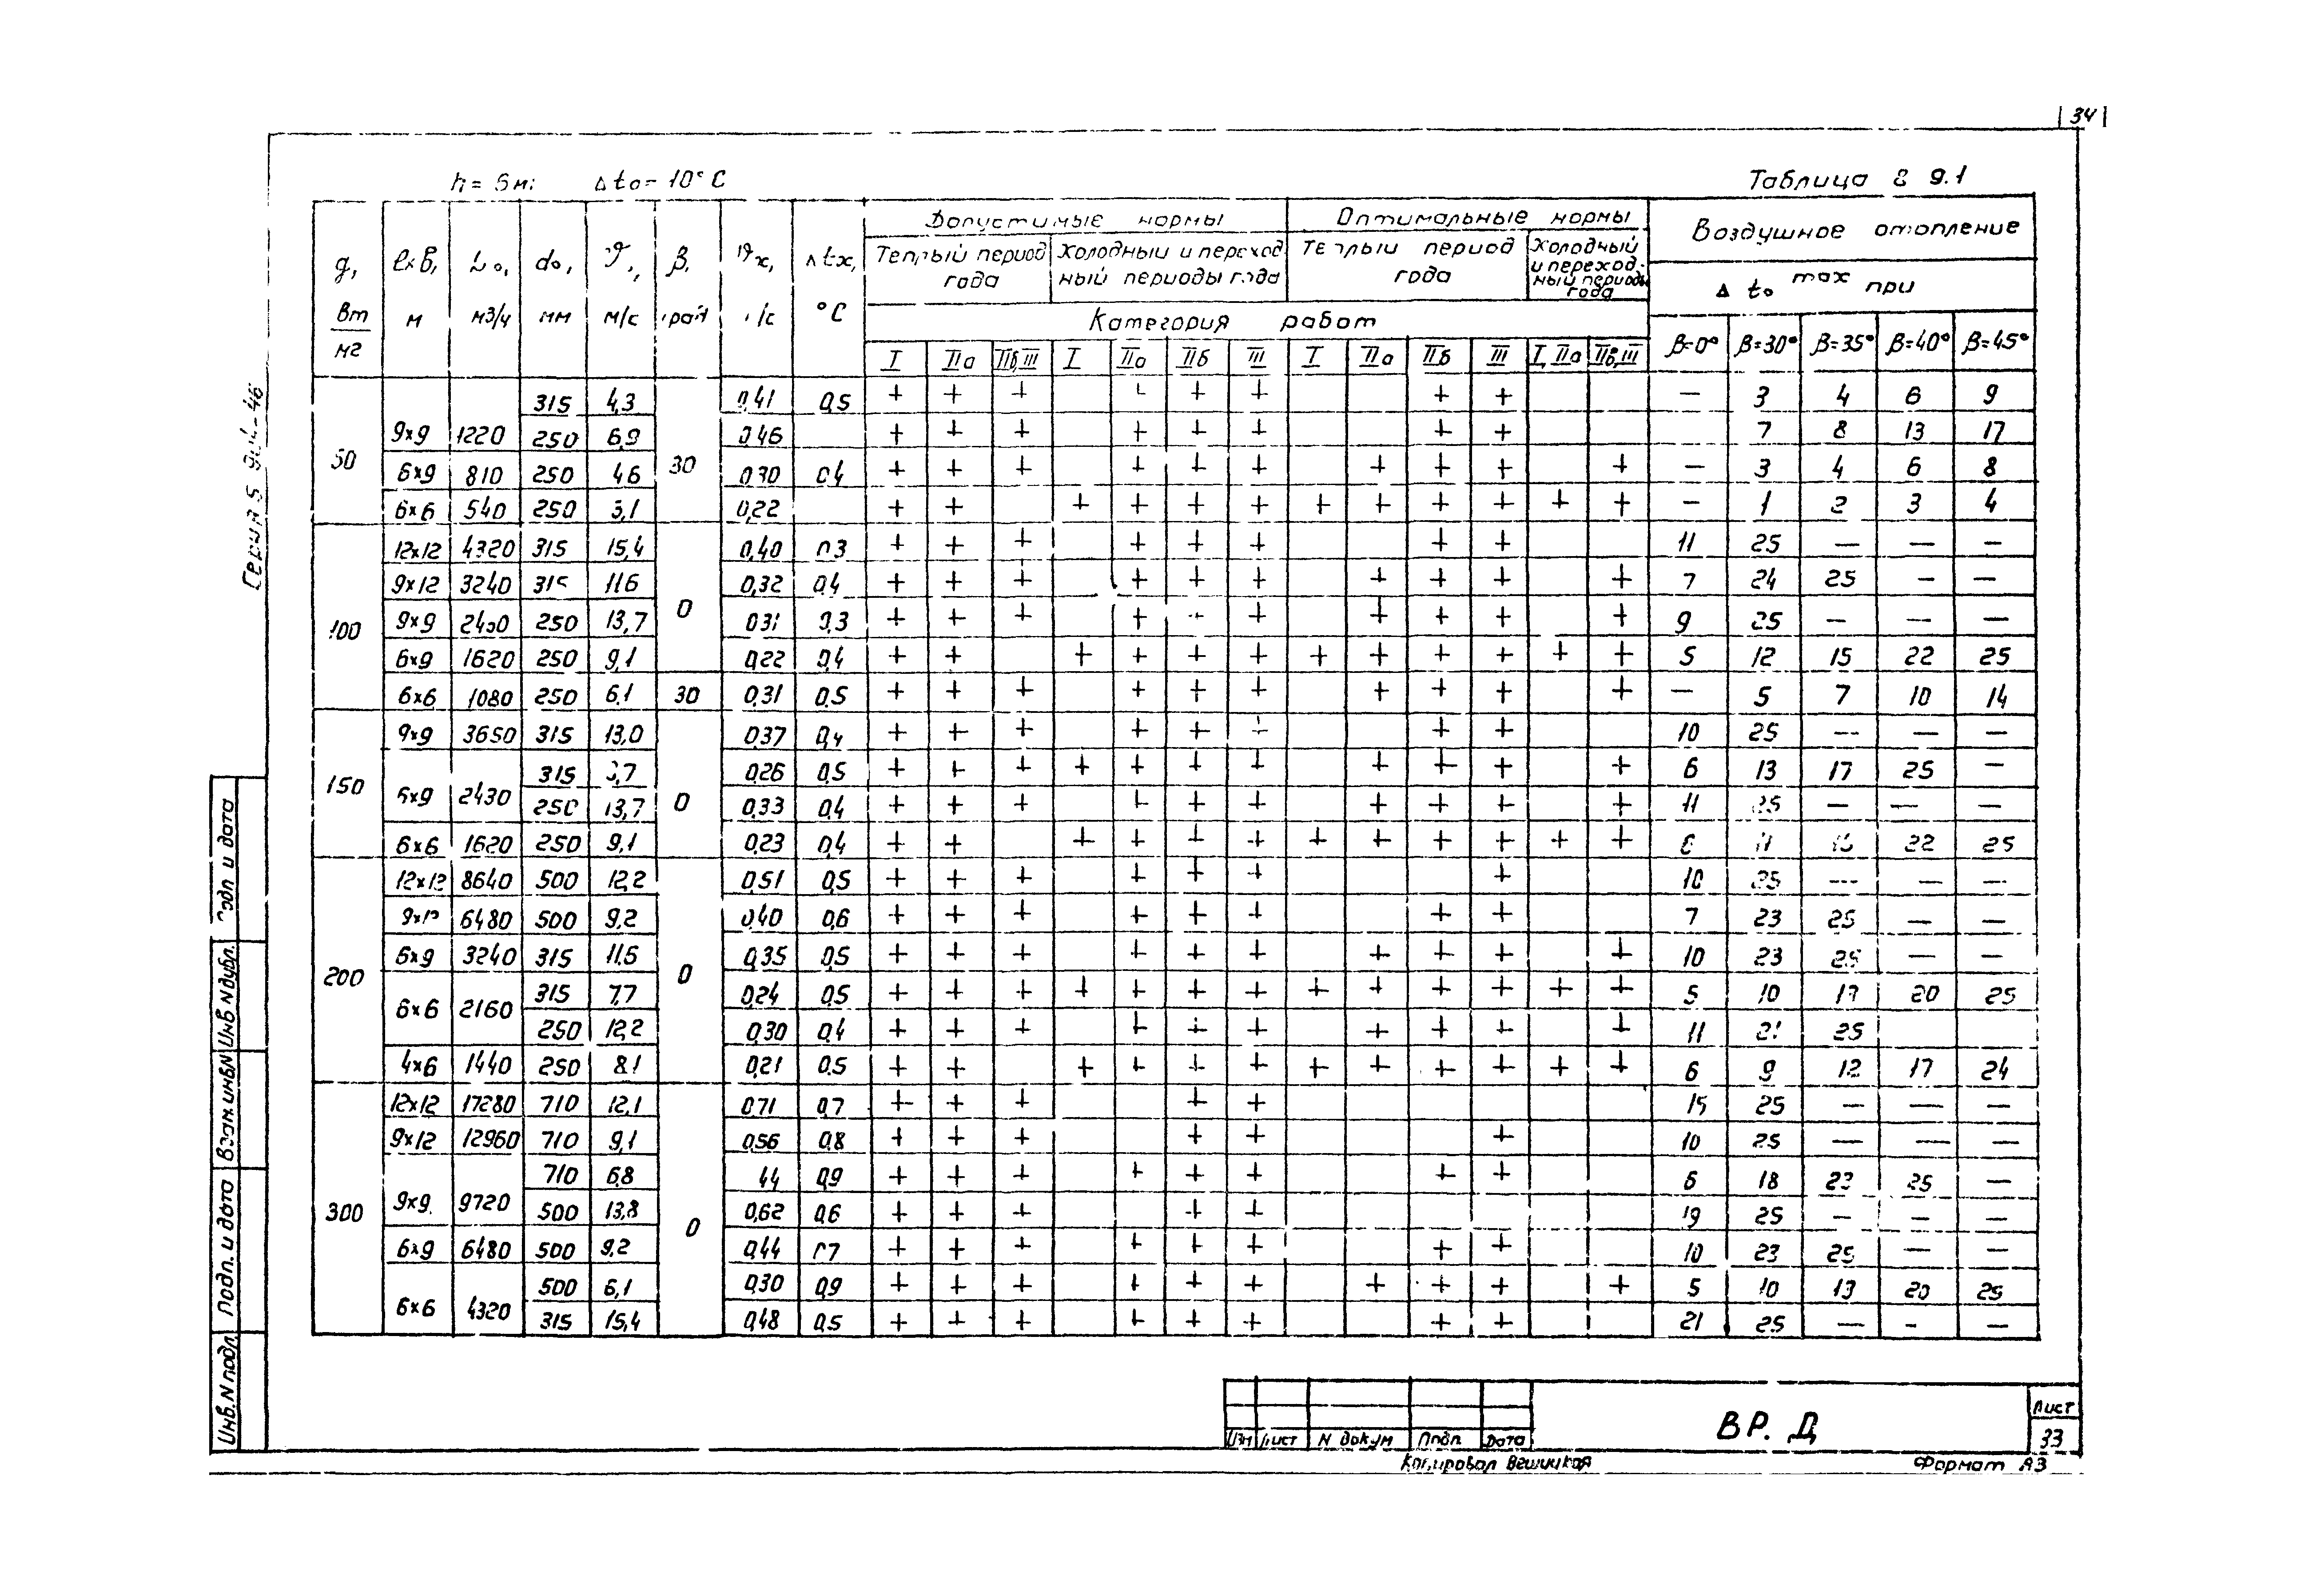 34
h = 6м; Δto = 10°С
Таблица 8 9.1
g, Вт/м2 | ℓ×в, м | Lо, м3/ч | dо, мм | м/с | β, | 𝜗x, | Δtx, °С | Допустимые нормы | Оптимальные нормы | Воздушное отопление
Теплый период года | Холодный и переходный периоды года | Теплый период года | Холодный и переходный периоды года | Δ to max при
Категория работ
I | IIа | IIб, III | I | IIа | IIб | III | I | IIа | IIб | III | I, IIа | IIб, III | β=0° | β=30° | β=35° | β=40° | β=45°
50 | 9×9 | 1220 | 315 | 4,3 | 30 | 0,41 | 0,5 | + | + | + | | + | + | + | | | + | + | | | — | 3 | 4 | 6 | 9
250 | 6,9 | 0,46 | | + | + | + | | + | + | + | | | + | + | | | | 7 | 8 | 13 | 17
6×9 | 810 | 250 | 4,6 | 0,30 | 0,4 | + | + | + | | + | + | + | | + | + | + | | + | — | 3 | 4 | 6 | 8
6×6 | 540 | 250 | 3,1 | 0,22 | | + | + | | + | + | + | + | + | + | + | + | + | + | — | 1 | 2 | 3 | 4
100 | 12×12 | 4320 | 315 | 15,4 | 0 | 0,40 | 0,3 | + | + | + | | + | + | + | | | + | + | | | 11 | 25 | — | — | —
9×12 | 3240 | 315 | 11,6 | 0,32 | 0,4 | + | + | + | | + | + | + | | + | + | + | | + | 7 | 24 | 25 | — | —
9×9 | 2430 | 250 | 13,7 | 0,31 | 0,3 | + | + | + | | + | + | + | | + | + | + | | + | 9 | 25 | — | — | —
6×9 | 1620 | 250 | 9,1 | 0,22 | 0,4 | + | + | | + | + | + | + | + | + | + | + | + | + | 5 | 12 | 15 | 22 | 25
6×6 | 1080 | 250 | 6,1 | 30 | 0,31 | 0,5 | + | + | + | | + | + | + | | + | + | + | | + | — | 5 | 7 | 10 | 14
150 | 9×9 | 3650 | 315 | 13,0 | 0 | 0,37 | 0,4 | + | + | + | | + | + | + | | | + | + | | | 10 | 25 | — | — | —
6×9 | 2430 | 315 | 0,26 | 0,5 | + | + | + | + | + | + | + | | + | + | + | | + | 6 | 13 | 17 | 25 | —
250 | 13,7 | 0,33 | 0,4 | + | + | + | | + | + | + | | + | + | + | | + | 11 | 25 | — | — | —
6×6 | 1620 | 250 | 9,1 | 0,23 | 0,4 | + | + | | + | + | + | + | + | + | + | + | + | + | 22 | 25
200 | 12×12 | 8640 | 500 | 12,2 | 0 | 0,51 | 0,5 | + | + | + | | + | + | + | | | | + | | | 10 | 25 | — | — | —
9×12 | 6480 | 500 | 9,2 | 0,40 | 0,6 | + | + | + | | + | + | + | | | + | + | | | 7 | 23 | 25 | — | —
6×9 | 3240 | 315 | 11,6 | 0,35 | 0,5 | + | + | + | | + | + | + | | + | + | + | | + | 10 | 23 | 25 | — | —
6×6 | 2160 | 315 | 7,7 | 0,24 | 0,5 | + | + | + | + | + | + | + | + | + | + | + | + | + | 5 | 10 | 20 | 25
250 | 12,2 | 0,30 | 0,4 | + | + | + | | + | + | + | | + | + | + | | + | 11 | 21 | 25
4×6 | 1440 | 250 | 8,1 | 0,21 | 0,5 | + | + | | + | + | + | + | + | + | + | + | + | + | 6 | 9 | 12 | 17 | 24
300 | 12×12 | 17280 | 710 | 12,1 | 0 | 0,71 | 0,7 | + | + | + | | | + | + | | | | | | | 15 | 25 | — | — | —
9×12 | 12960 | 710 | 9,1 | 0,56 | 0,8 | + | + | + | | | + | + | | | | + | | | 10 | 25 | — | — | —
9×9 | 9720 | 710 | 6,8 | 44 | 0,9 | + | + | + | | + | + | + | | | + | + | | | 6 | 18 | 23 | 25 | —
500 | 13,8 | 0,62 | 0,6 | + | + | + | | | + | + | | | | | | | 19 | 25 | — | — | —
6×9 | 6480 | 500 | 9,2 | 0,44 | 0,7 | + | + | + | | + | + | + | | | + | + | | | 10 | 23 | 25 | — | —
6×6 | 4320 | 500 | 6,1 | 0,30 | 0,9 | + | + | + | | + | + | + | | + | + | + | | + | 5 | 10 | 13 | 20 | 25
315 | 15,4 | 0,48 | 0,5 | + | + | + | | + | + | + | | | + | + | | | 21 | 25 | — | - | —
Серия 5.904-46
Подп и дата
Инв Nдубл.
Взам инвN
Подп. и дата
Инв.N подл
Изм | Лист | N докум | Подп | Дата
ВР. Д
Лист
33
Копировал
Формат А3